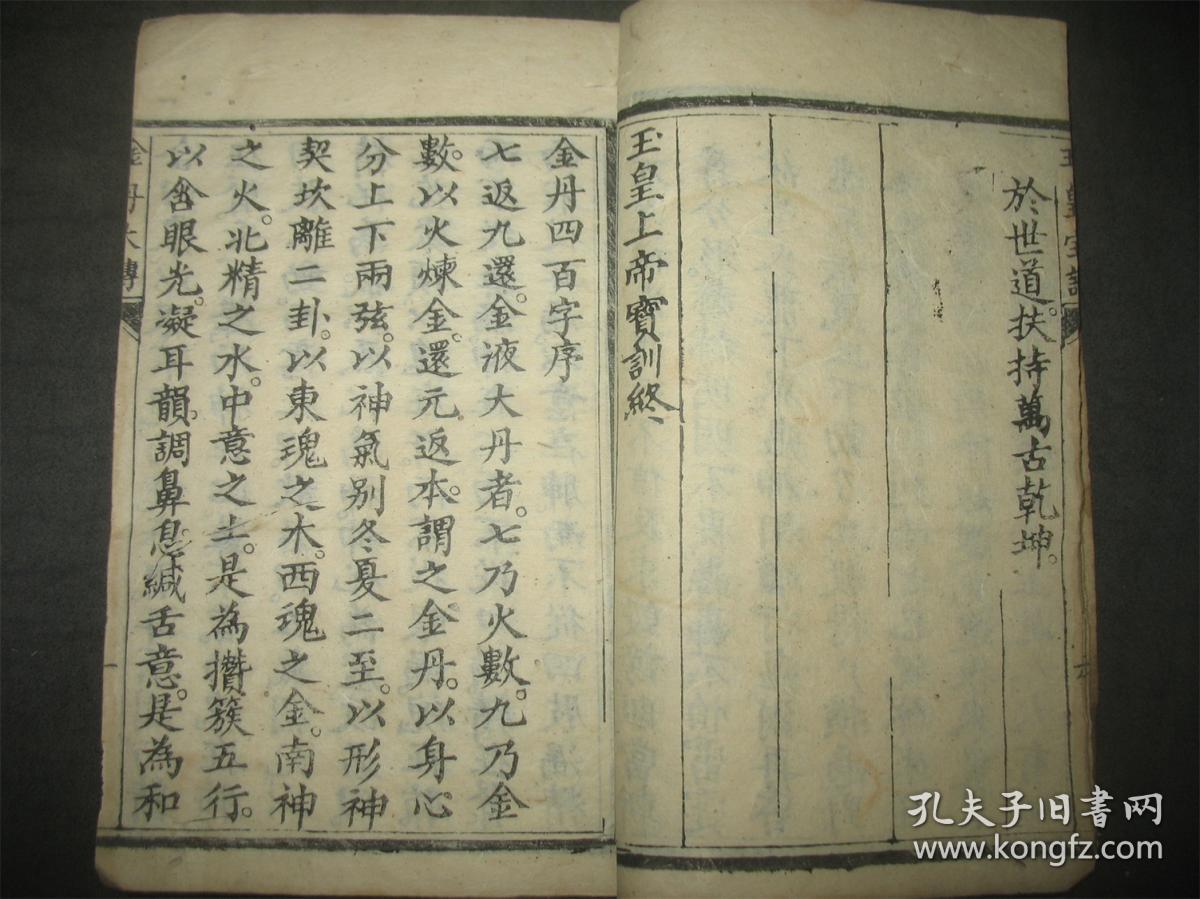 於世道。扶持萬古乾坤。
玉皇上帝寶訓終
金丹四百字序
七返九還。金液大丹者。七乃火數。九乃金
數。以火煉金。還元返本。謂之金丹。以身心
分上下兩弦。以神氣別冬夏二至。以形神
契坎離二卦。以東魂之木。西魂之金。南神
之火。北精之水。中意之土。是為攢簇五行。
以含眼光。凝耳韻。調鼻息。緘舌意。是為和
金丹大傳
孔夫子旧书网
www.kongfz.com